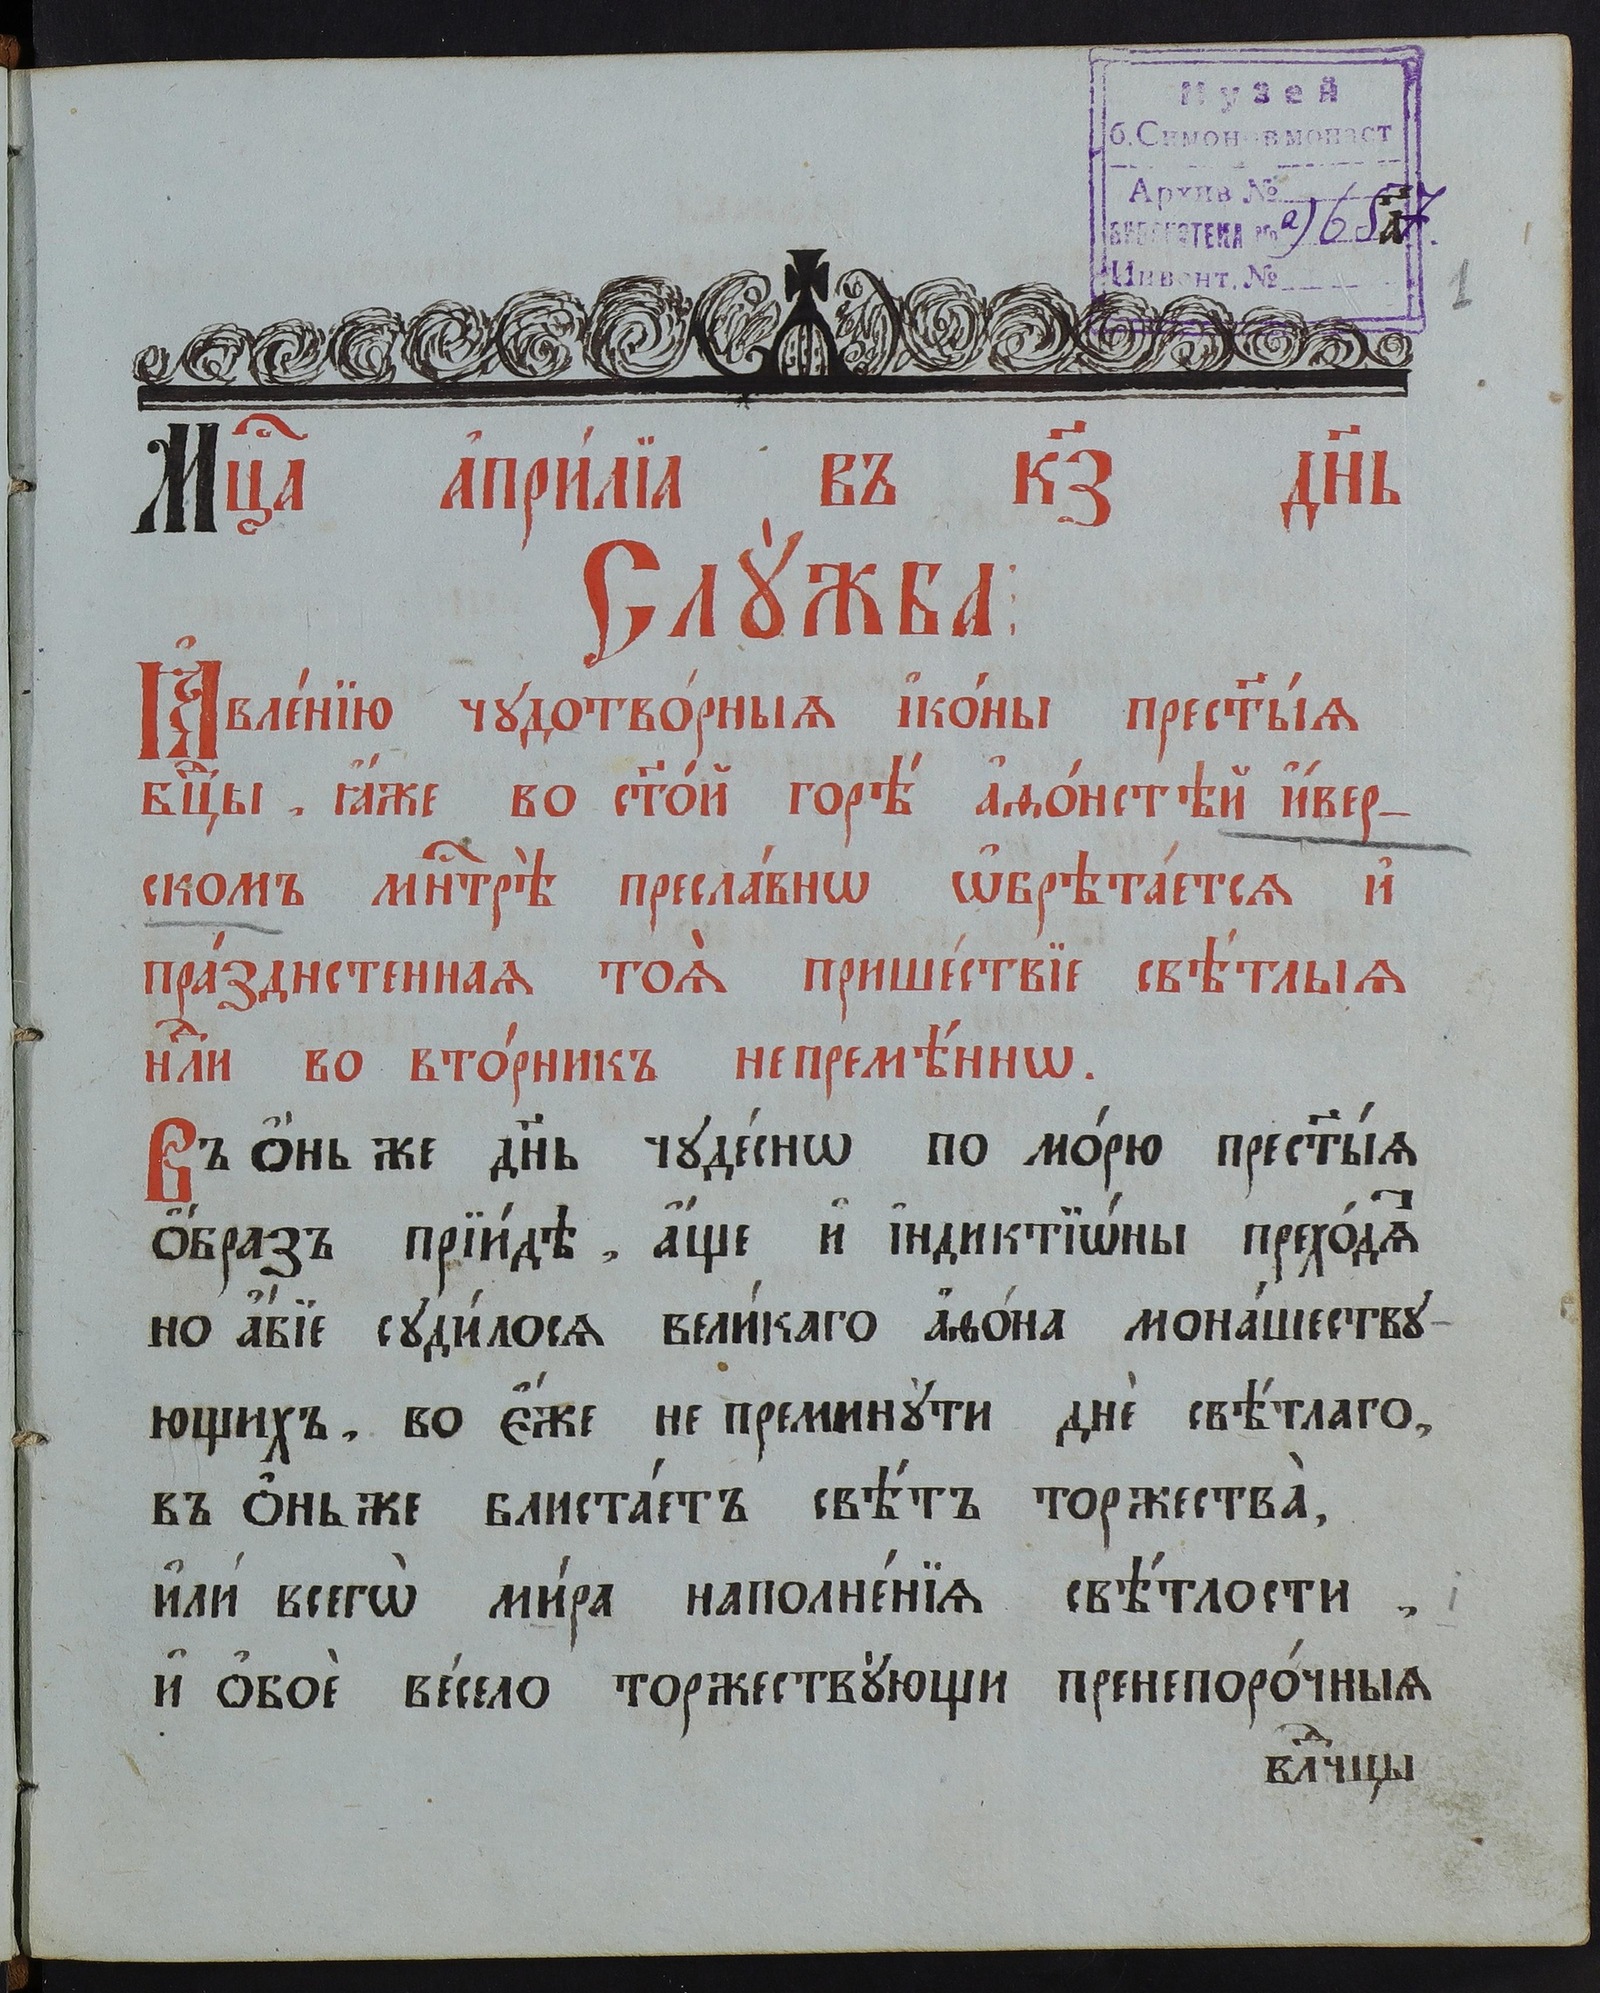 Музей
б. Симонов монаст
Архив №
Библиотека № а) 65
Инвент. №
а҃
1
Мцⷭ҇а а҆при́лїа въ к҃з дн҃ь
Слꙋ́жба:
Ꙗ҆вле́нїю чꙋдотво́рныѧ і҆ко́ны прест҃ы́ѧ
бц҃ы, ꙗ҆́же во ст҃о́й горѣ́ а҆ѳо́нстѣй и҆́вер-
скомъ мн҃трѣ̀ пресла́внѡ ѡ҆брѣта́етсѧ и҆
пра́зднстеннаѧ тоѧ̀ прише́ствїе свѣ́тлыѧ
нлⷣи во вто́рникъ непремѣ́ннѡ.
Въ о҆́ньже дн҃ь чꙋде́снѡ по мо́рю прест҃ы́ѧ
ѻ҆́бразъ прїи́дѣ, а҆́ще и҆ і҆ндиктїѡ́ны прехо́дѧⷮ
но а҆́бїе сꙋди́лосѧ вели́каго а҆ѳо́на мона́шествꙋ-
ющихъ, во є҆́же не преминꙋ́ти днѐ свѣ́тлаго,
въ о҆́ньже блиста́етъ свѣ́тъ торжества̀,
и҆лѝ всегѡ̀ ми́ра наполне́нїѧ свѣ́тлости,
и҆ ѻ҆боѐ ве́село торжествꙋ́ющи пренепоро́чныѧ
влⷣчцы